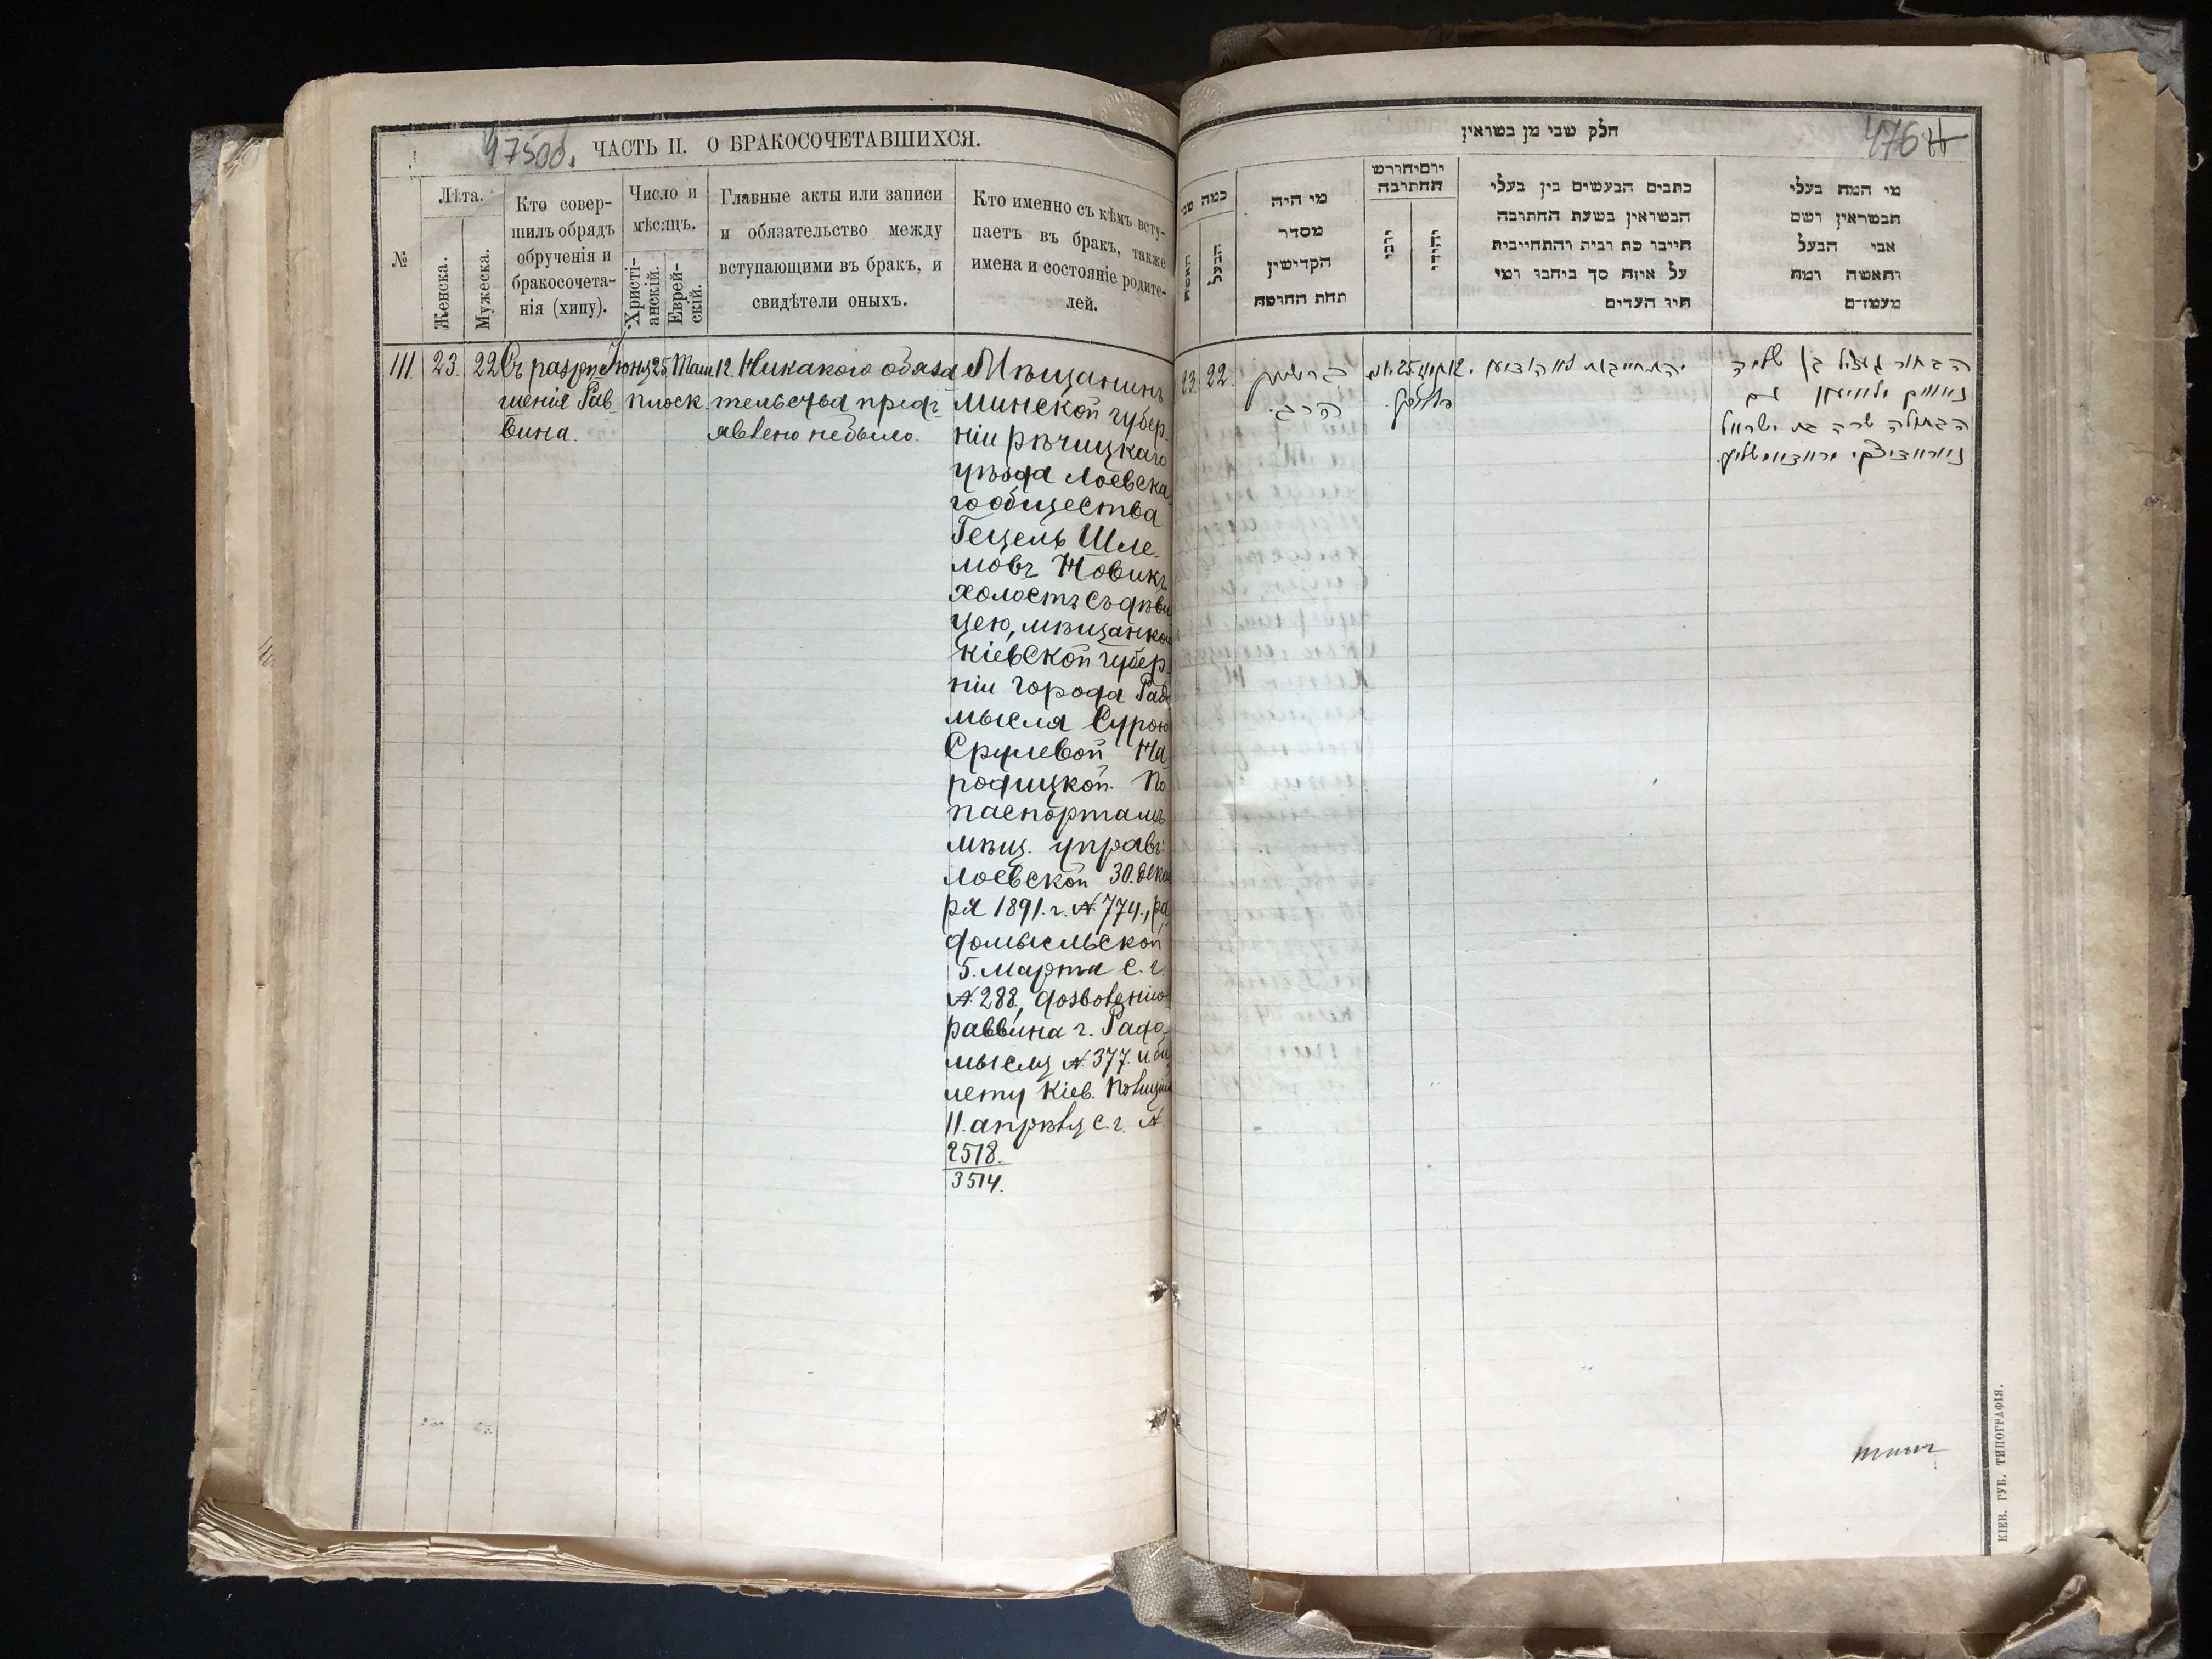 475об.
ЧАСТЬ II. О БРАКОСОЧЕТАВШИХСЯ.
№
Лѣта.
Женска.
Мужеска.
Кто совер-
шилъ обрядъ
обрученія и
бракосочета-
нія (хипу).
Число и
мѣсяцъ.
Христі-
анскій.
Еврей-
скій.
Главные акты или записи
и обязательство между
вступающими въ бракъ, и
свидѣтели оныхъ.
Кто именно съ кѣмъ всту-
паетъ въ бракъ, также
имена и состояніе родите-
лей.
111.
23.
22
Съ разрѣ
шенія Рав
вина.
Іюня 25.
Там. 12.
плоск.
Никакого обяза
тельства предъ
явлено не было.
Мѣщанинъ
Минской губер
ніи рѣчицкаго
уѣзда Лоевска
го общества
Гецель Шле
мовъ Новикъ
холостъ съ дѣви
цею, мѣщанкой
Кіевской губер
ніи города Радо
мысля Сурою
Срулевой На
родицкой. По
паспортамъ
мѣщ. управъ:
Лоевской 30. дека
ря 1891. г. № 774., ра
домысльской
5. Марта с. г.
№ 288, дозволенію
раввина г. Радо
мысля № 377. и би
лету Кіев. Полиціи
11. апрѣля с. г. №
2518.
3514.
476
חלק שני מן בשואין
כמה שני
האשה
הבעל
מי היה
מסדר
הקדישין
תחת החופה
יום וחודש
החתובה
נוצרי
יהודי
כתבים הנעשים בין בעלי
הנשואין בשעת החתובה
חייבו כת ובית והתחייבות
על איזה סך ביחבו ומי
היו העדים
מי המה בעלי
הנשואין ושם
אבי הבעל
והאשה ומה
מעמדם
23.
22.
25.
12.
הבחור געציל בן שלמה
נאוויק
עם
הבתולה שרה בת ישראל
КІЕВ. ГУБ. ТИПОГРАФІЯ.